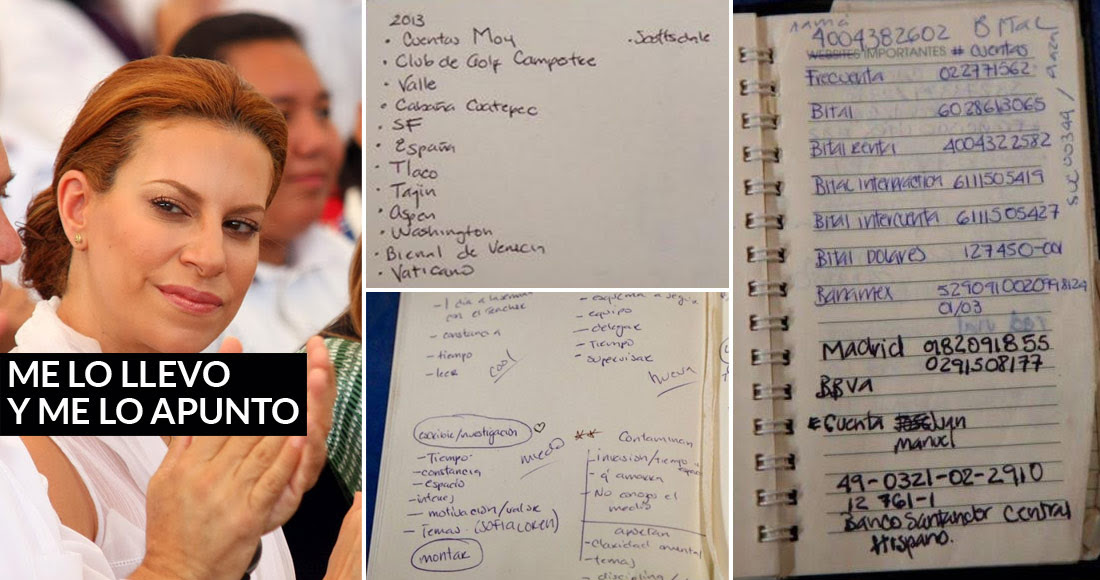 ME LO LLEVO
Y ME LO APUNTO
2013
• Cuentas Moy
• Scottsdale
• Club de Golf Campotee
• Valle
• Cabaña Coatepec
• SF
• España
• Tlaco
• Tajin
• Aspen
• Washington
• Bienal de Venecia
• Vaticano
- 1 dia a la semana
con el
- constancia
- tiempo
- leer
cool
- esquema a seguir
- equipo
- delegar
- Tiempo
- supervisar
hueva
escribir/investigación
- Tiempo
- constancia
- espacio
- interes
- motivación/valor
- Temas (sofia loren)
montar
miedo
** Contaminan
- invasión/tiempo
espacio
- q' amarra
- No conozco el
medio
aportan
- Claridad mental
- temas
- disciplina
mamá
4004382602 B Mac
WEBSITES IMPORTANTES # cuentas
Frecuenta 022771562
Bital 6028613065
Bital renta 4004322582
Bital interacction 6111505419
Bital intercuenta 6111505427
Bital Dolares 127450-001
Banamex 5290910020998124
01/03
Suc 00344 /
Madrid 0182091855
0291508177
BBVA
# Cuenta
Manuel
49-0321-02-2910
12 761-1
Banco Santander Central
Hispano.